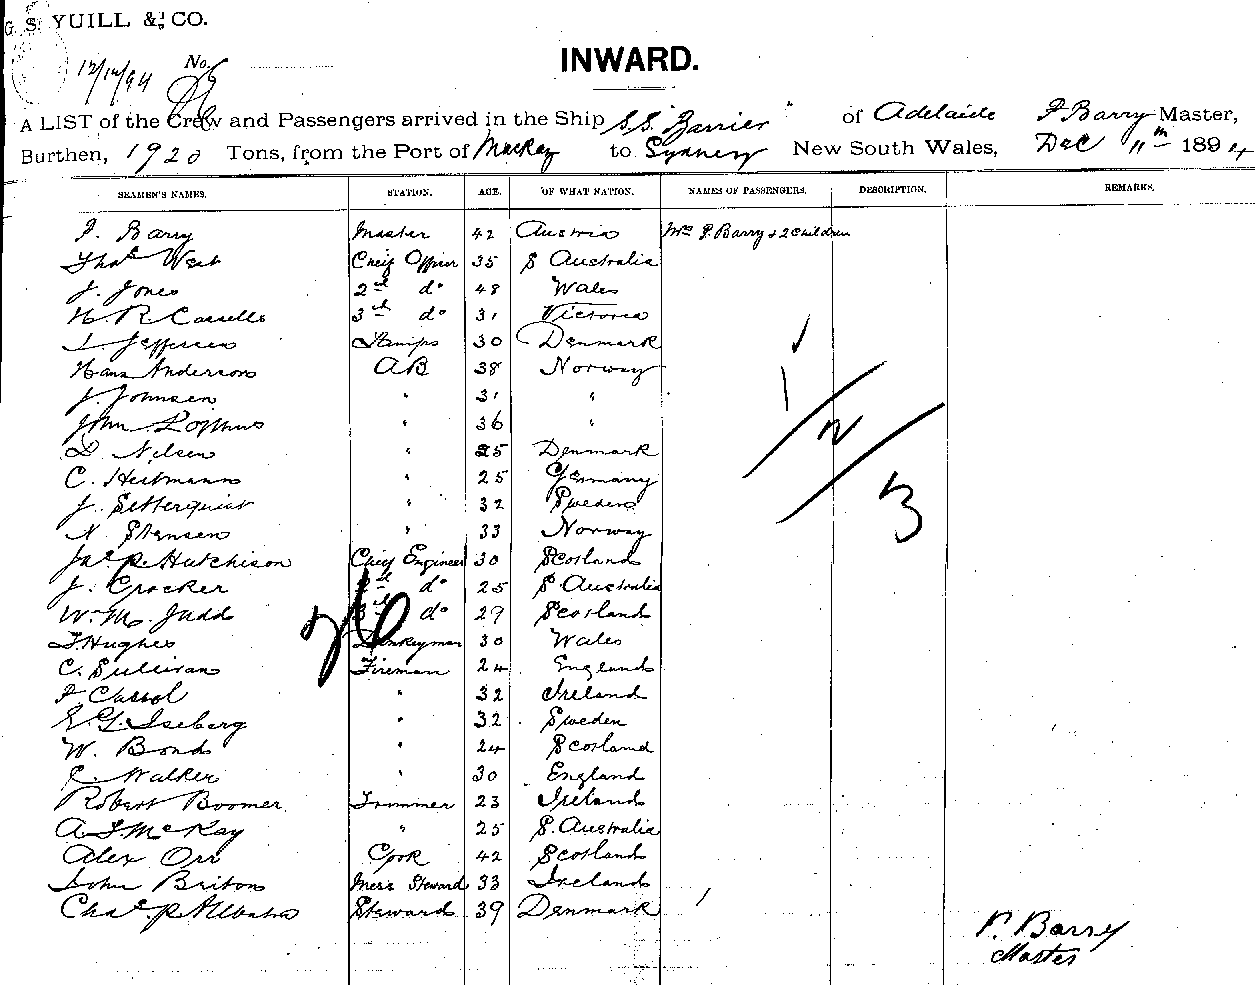 G. S. YUILL & CO.
12/12/94 No.
INWARD.
A LIST of the Crew and Passengers arrived in the Ship S.S. "Barrier" of Adelaide P Barry Master,
Burthen, 1920 Tons, from the Port of Mackay to Sydney New South Wales, Dec 11th 1894
SEAMEN'S NAMES. STATION. AGE. OF WHAT NATION. NAMES OF PASSENGERS. DESCRIPTION. REMARKS.
P. Barry Master 42 Austria Mrs P. Barry & 2 Children
Thos West Cheif Officer 35 S Australia
J. Jones 2nd do 48 Wales
H. R. Cassells 3rd do 31 Victoria
30 Denmark
Hans Anderson AB 38 Norway
J. Johnsen " 31 "
John " 36 "
D. Nilsen " 25 Denmark
C. Heitmann " 25 Germany
J. Setterquist " 32 Sweden
N. Stensen " 33 Norway
Jas R. Hutchison Chief Engineer 30 Scotland
J. Crocker 2nd do 25 S. Australia
W. M. Judd 3rd do 29 Scotland
T. Hughes Donkeyman 30 Wales
C. Sullivan Fireman 24 England
P Cassol " 32 Ireland
E. G. Iseberg " 32 Sweden
W. Bond " 24 Scotland
Walker " 30 England
Robert Boomer Trimmer 23 Ireland
A. J. McKay " 25 S. Australia
Alex Orr Cook 42 Scotland
John Briton Mess Steward 33 Ireland
Chas. P. Steward 39 Denmark
1/2/3
26
P. Barry
Master